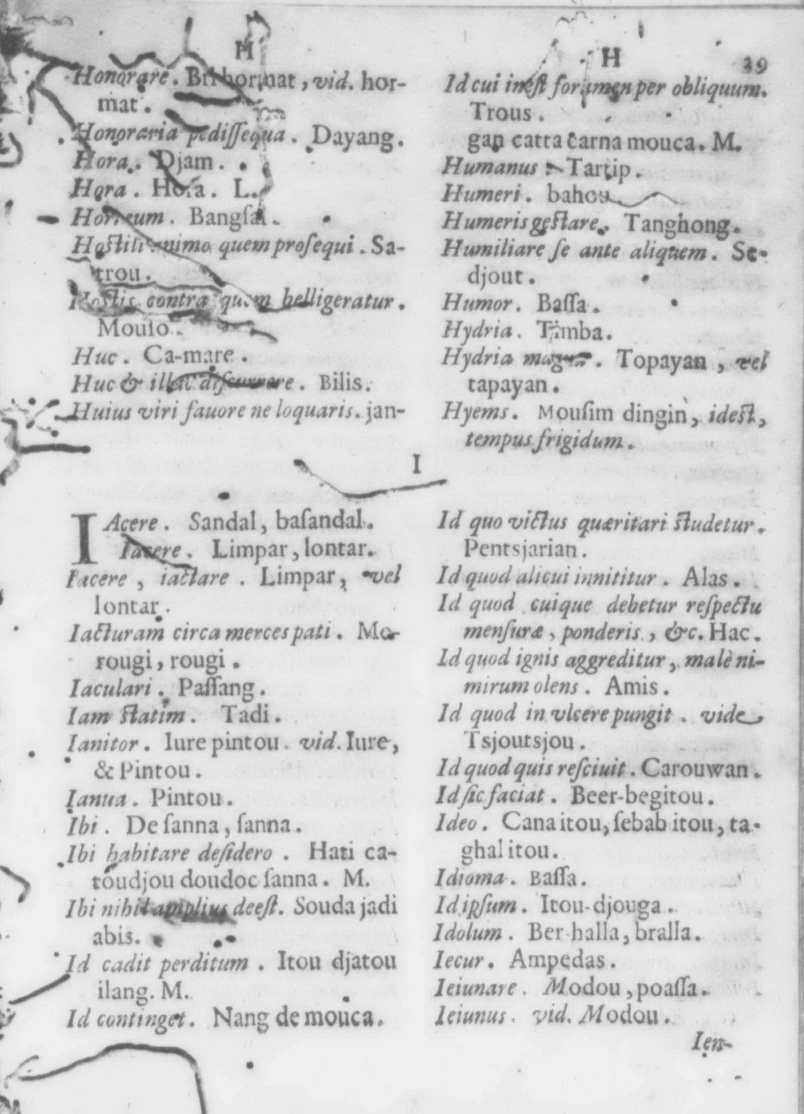 H
Honorare. Brihormat, vid. hor-
mat.
Honoraria pedissequa. Dayang.
Hora. Djam.
Hora. Hora. L.
Horreum. Bangſal.
Hostili animo quem prosequi. Sa-
trou.
Hostis contra quem belligeratur.
Mouſo.
Huc. Ca-mare.
Huc & illuc discurrere. Bilis.
Huius viri fauore ne loquaris. jan-
H 29
Id cui inest foramen per obliquum.
Trous.
gan catta carna mouca. M.
Humanus. Tartip.
Humeri. bahou
Humeris gestare. Tanghong.
Humiliare se ante aliquem. Se-
djout.
Humor. Baſſa.
Hydria. Timba.
Hydria magna. Topayan, vel
tapayan.
Hyems. Mouſim dingin, idest,
tempus frigidum.
I
IAcere. Sandal, baſandal.
Iacere. Limpar, lontar.
Iacere, iactare. Limpar, vel
lontar.
Iacturam circa merces pati. Me-
rougi, rougi.
Iaculari. Paſſang.
Iam statim. Tadi.
Ianitor. Iure pintou. vid. Iure,
& Pintou.
Ianua. Pintou.
Ibi. De ſanna, ſanna.
Ibi habitare desidero. Hati ca-
toudjou doudoc ſanna. M.
Ibi nihil amplius deest. Souda jadi
abis.
Id cadit perditum. Itou djatou
ilang. M.
Id continget. Nang de mouca.
Id quo victus quæritari studetur.
Pentsjarian.
Id quod alicui innititur. Alas.
Id quod cuique debetur respectu
mensuræ, ponderis, &c. Hac.
Id quod ignis aggreditur, malè ni-
mirum olens. Amis.
Id quod in vlcere pungit. vide
Tsjoutsjou.
Id quod quis resciuit. Carouwan.
Id sic faciat. Beer-begitou.
Ideo. Cana itou, ſebab itou, ta-
ghal itou.
Idioma. Baſſa.
Id ipsum. Itou-djouga.
Idolum. Ber-halla, bralla.
Iecur. Ampedas.
Ieiunare. Modou, poaſſa.
Ieiunus. vid. Modou.
Ien-